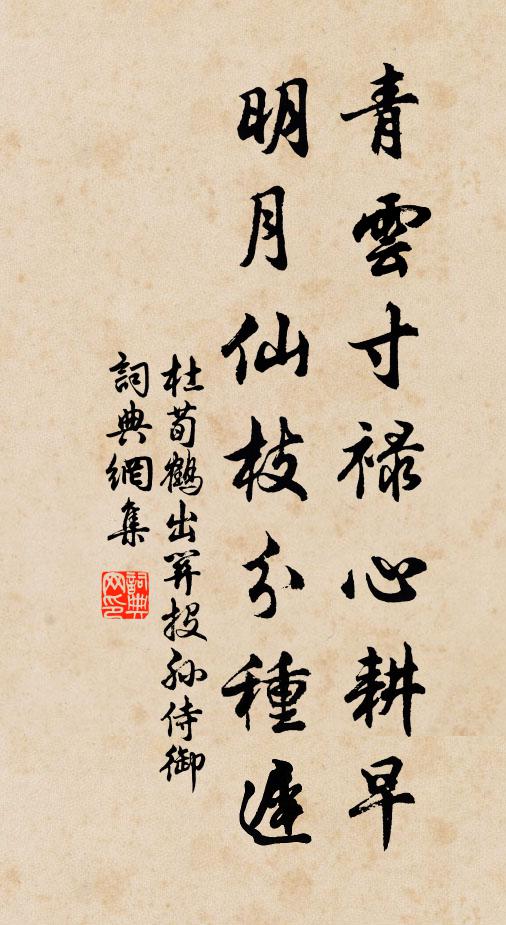 青雲寸禄心耕早
明月仙枝分種遲
杜荀鶴出關投孫侍御
詞典網集
詞典网印